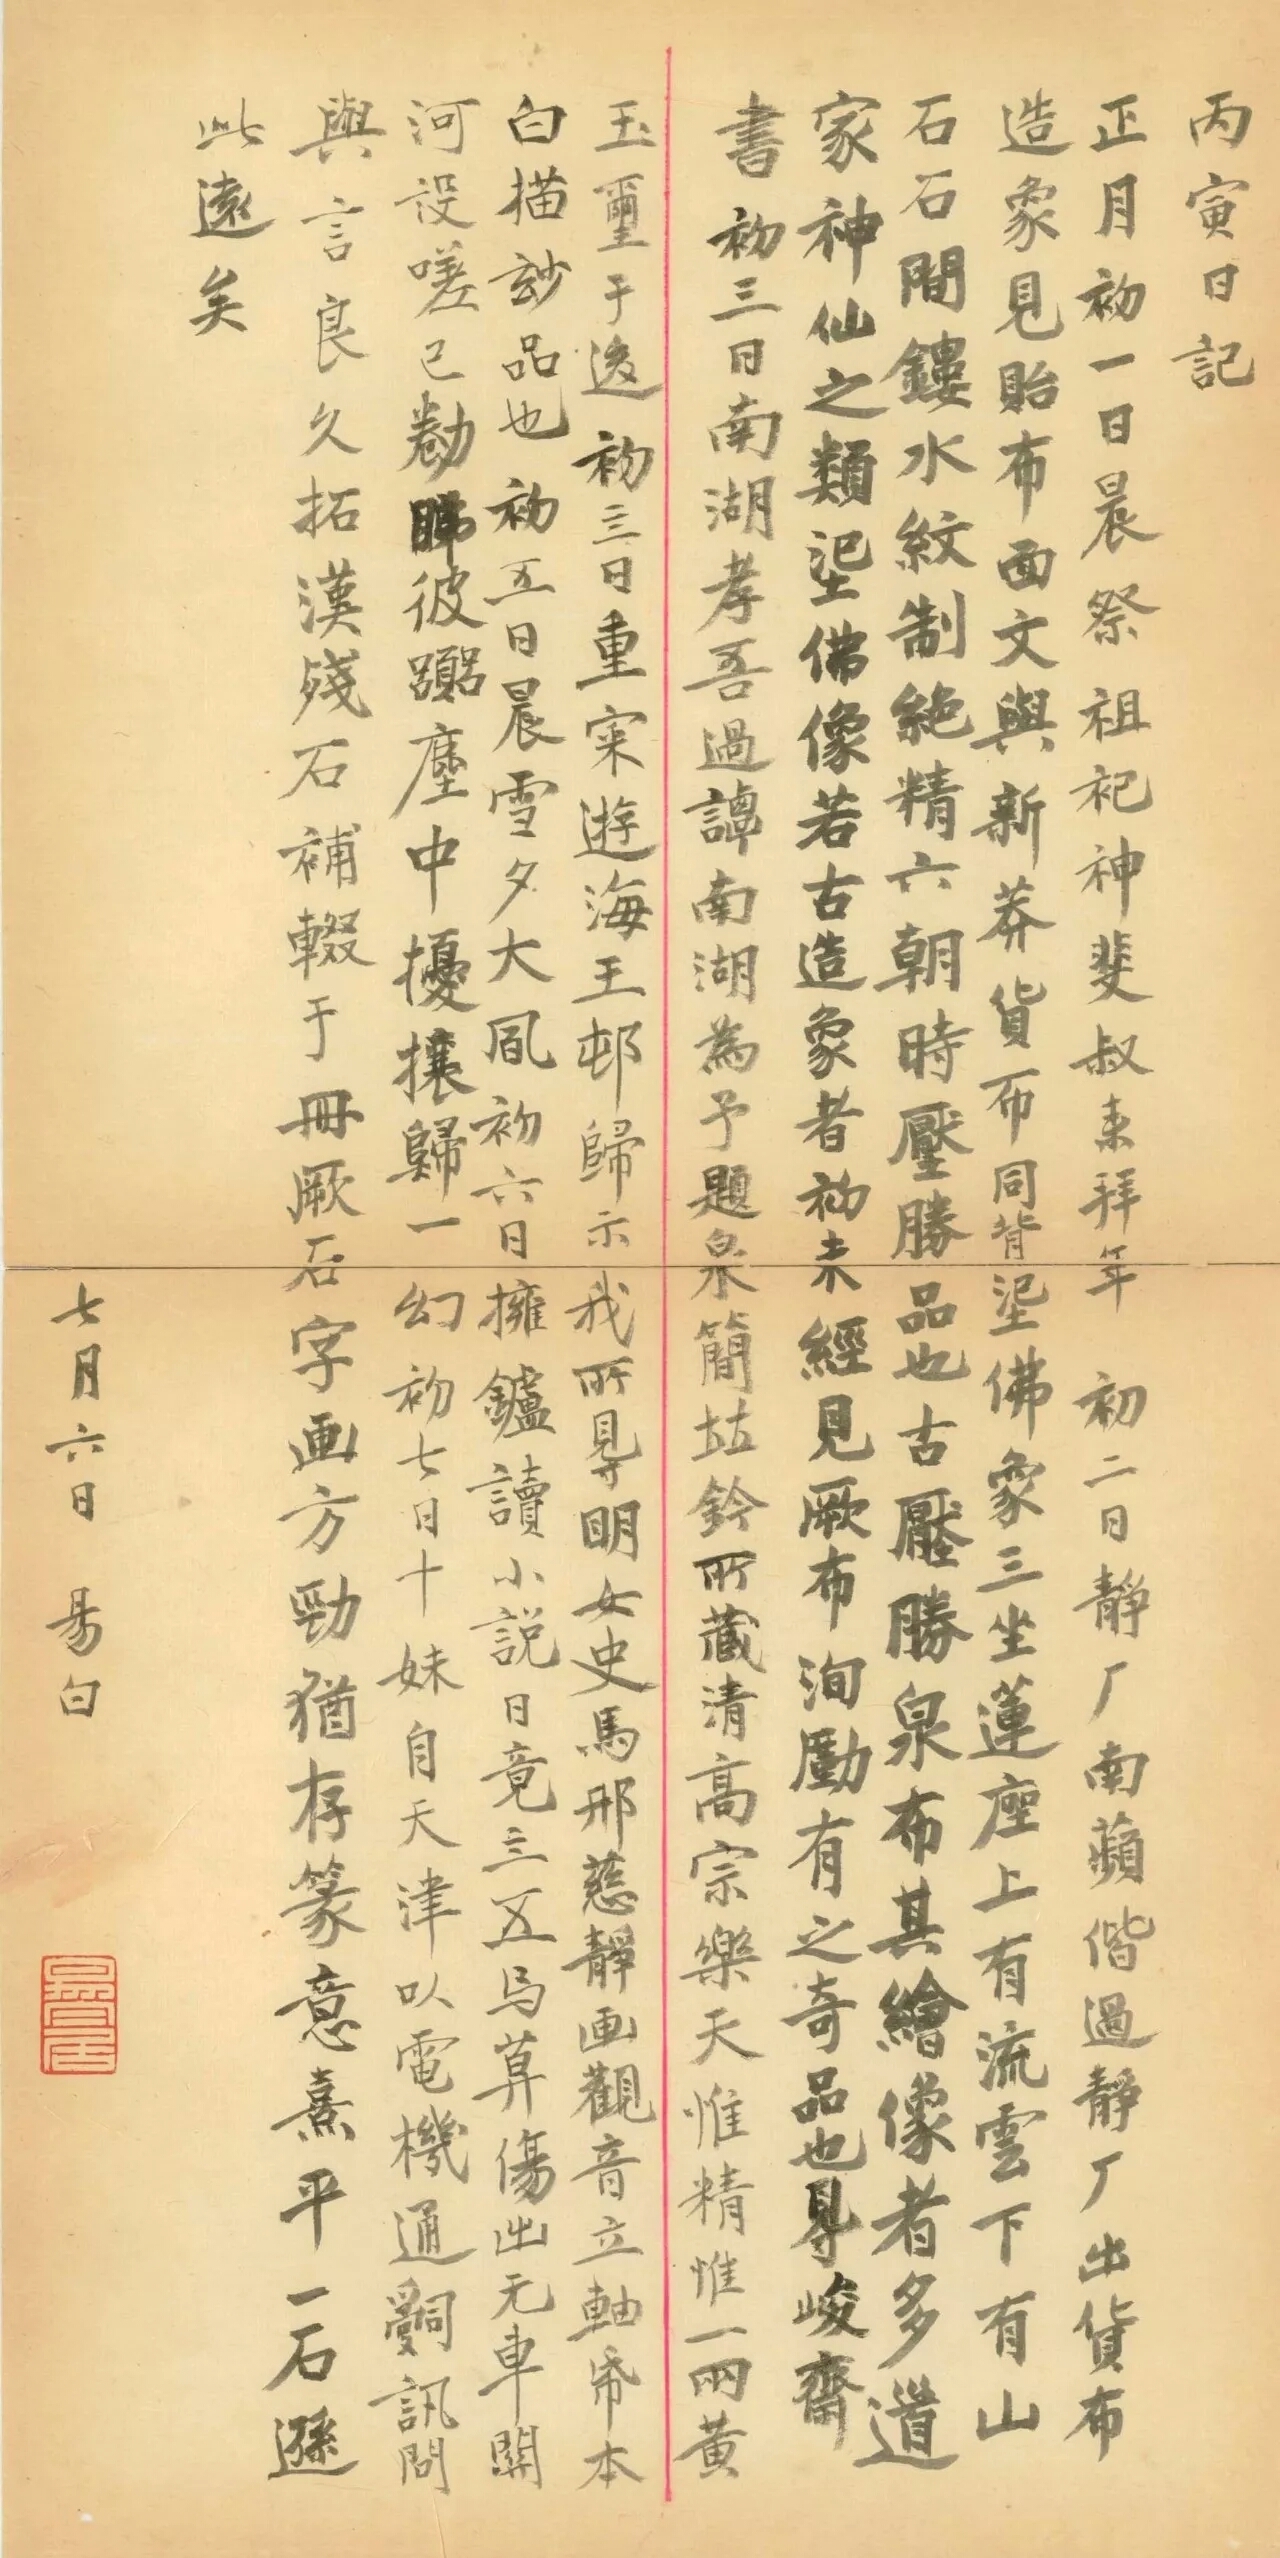 丙寅日記
正月初一日晨祭祖祀神斐叔来拜年 初二日靜厂南蘋偕過靜厂出貨布
造象見貽布面文與新莽貨布同背埿佛象三坐蓮座上有流雲下有山
石石間鏤水紋制絶精六朝時壓勝品也古壓勝泉布其繪像者多道
家神仙之類埿佛像若古造象者初未經見厥布洵勵有之奇品也㝵峻齋
書 初三日南湖孝吾過譚南湖為予題泉簡㘴鈐所藏清高宗樂天惟精惟一兩黃
玉璽于後 初三日重寀遊海王邨歸示我所㝵明女史馬邢慈靜画觀音立軸帋本
白描玅品也 初五日晨雪夕大風初六日擁鑪讀小説日竟三五与算傷出无車開
河設嗟已勌睇彼躢塵中擾攘歸一幻 初七日十妹自天津以電機通辭訊問
與言良久拓漢殘石補輟于冊厥石字画方勁猶存篆意熹平一石遜
此遠矣
七月六日 昜白